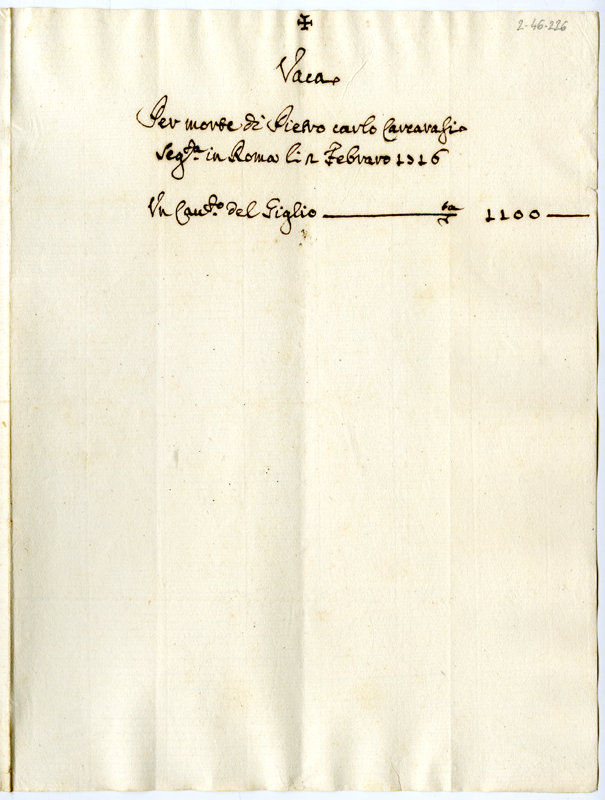 2-46-226
✠
Vaca
Per morte di Pietro carlo Carcarasi
seg.ta in Roma li 2 Febraro 1516
Un Cau.to del Giglio ——— 1100 —